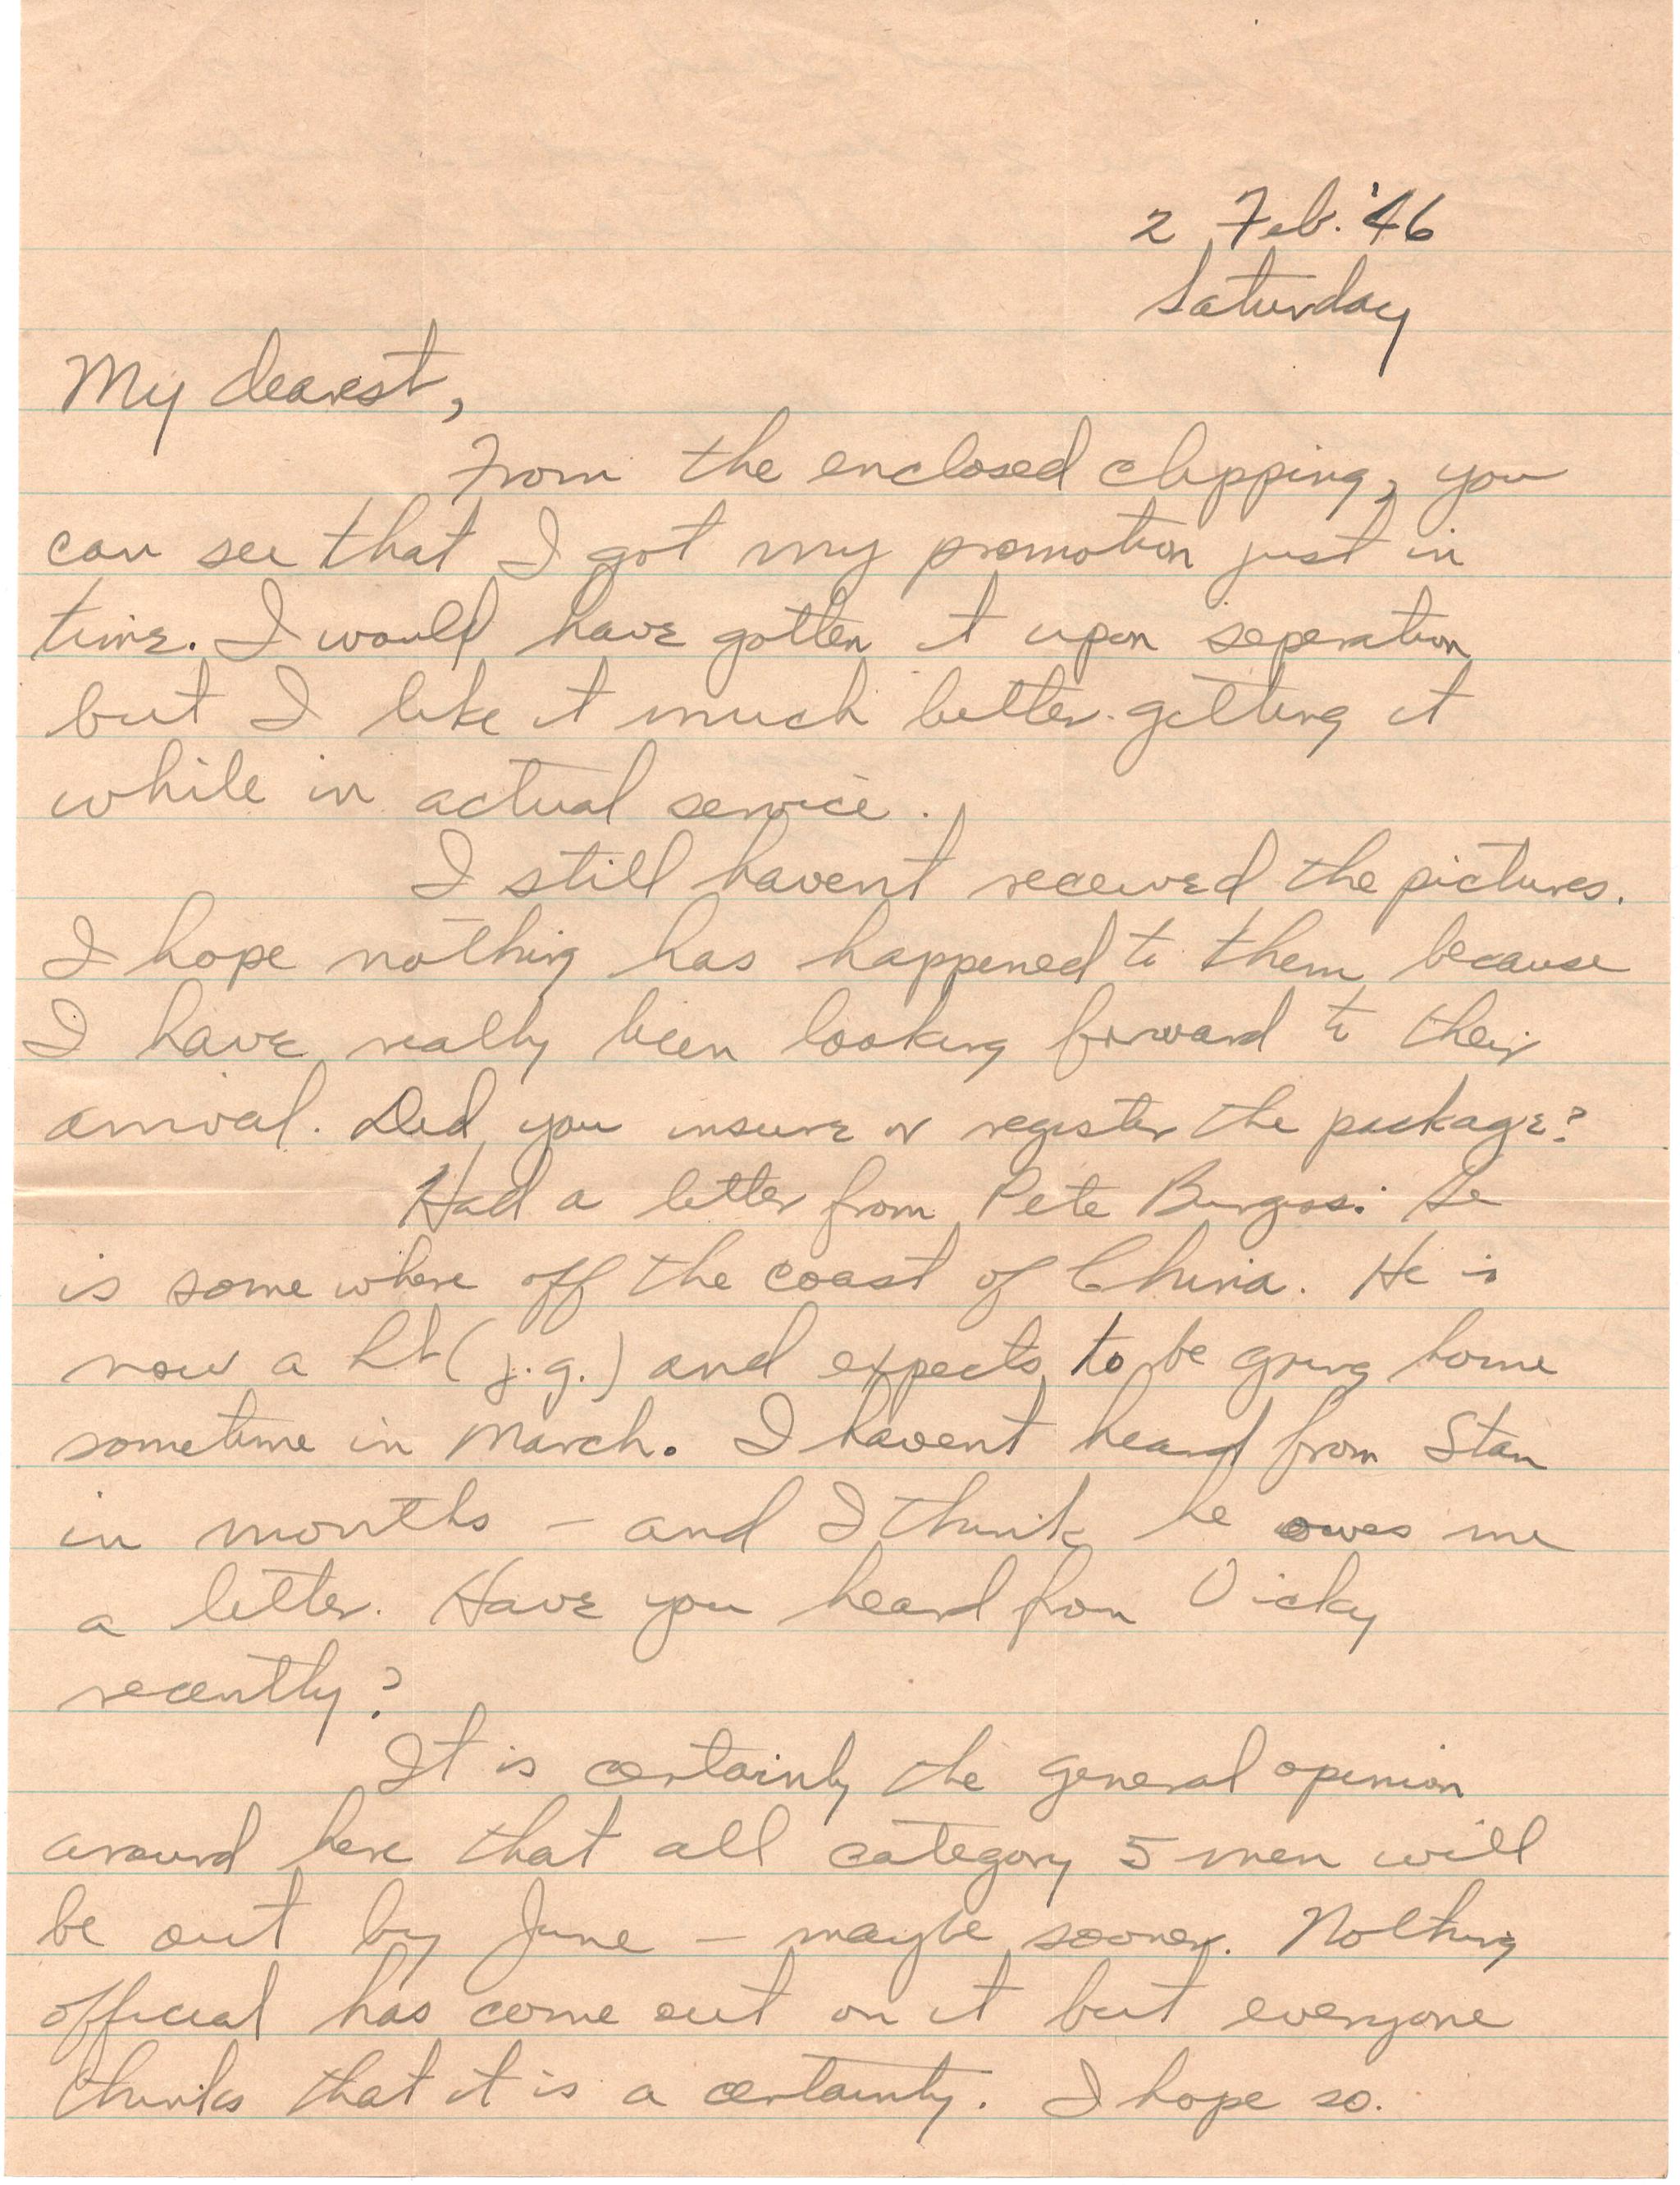 2 Feb. '46
Saturday
My dearest,
From the enclosed clipping, you
can see that I got my promotion just in
time. I would have gotten it upon seperation
but I like it much better getting it
while in actual service.
I still havent received the pictures.
I hope nothing has happened to them because
I have really been looking forward to their
arrival. Did you insure or register the package?
Had a letter from Pete Burgess. He
is some where off the coast of China. He is
now a Lt (j.g.) and expects to be going home
sometime in March. I havent heard from Stan
in months - and I think he owes me
a letter. Have you heard from Vicky
recently?
It is certainly the general opinion
around here that all category 5 men will
be out by June - maybe sooner. Nothing
official has come out on it but everyone
thinks that it is a certainty. I hope so.